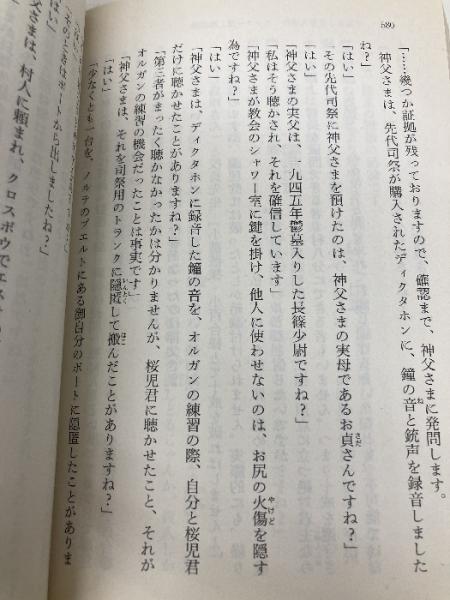 580
「……幾つか証拠が残っておりますので、確認まで、神父さまに発問します。
神父さまは、先代司祭が購入されたディクタホンに、鐘の音と銃声を録音しました
ね？」
「はい」
「その先代司祭に神父さまを預けたのは、神父さまの実母であるお貞さんですね？」
「はい」
「神父さまの実父は、一九四五年鬱墓入りした長篠少尉ですね？」
「私はそう聴かされ、それを確信しています」
「神父さまが教会のシャワー室に鍵を掛け、他人に使わせないのは、お尻の火傷を隠す
為ですね？」
「はい」
「神父さまは、ディクタホンに録音した鐘の音を、オルガンの練習の際、自分と桜児君
だけに聴かせたことがありますね？」
「第三者がまったく聴かなかったかは分かりませんが、桜児君に聴かせたこと、それが
オルガンの練習の機会だったことは事実です」
「神父さまは、それを司祭用のトランクに隠匿して搬んだことがありますね？」
「はい」
「少なくとも一台を、ノルテのプエルトにある御自分のボートに隠匿したことがありま
から出しましたね？」
はい」
父さまは、村人に頼まれ、クロスボウで